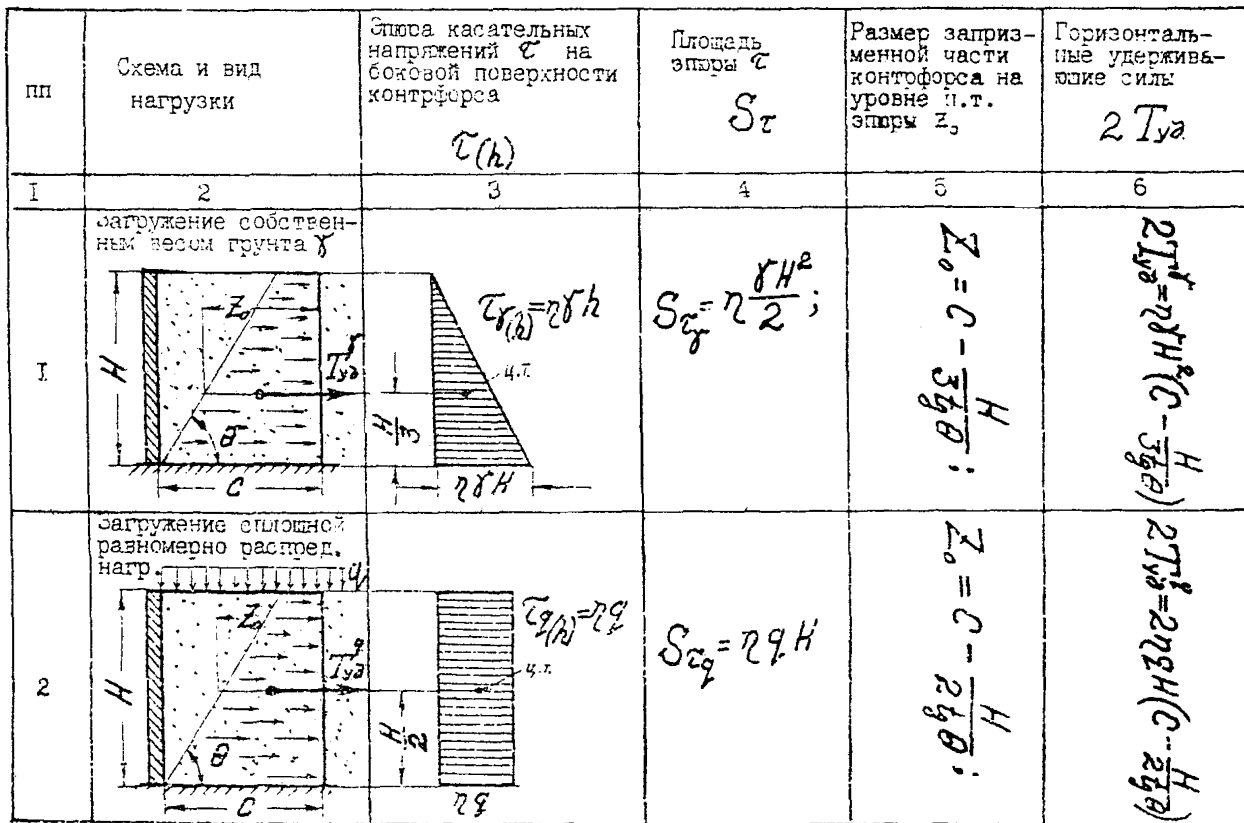 пп
Схема и вид
нагрузки
Эпюра касательных
напряжений τ на
боковой поверхности
контрфорса
τ(h)
Площадь
эпюры τ
Sτ
Размер заприз-
менной части
контрфорса на
уровне ц.т.
эпюры Z₀
Горизонталь-
ные удержива-
ющие силы
2Tуд
I
2
3
4
5
6
I
Загружение собствен-
ным весом грунта γ
H
Z₀
Tуд^γ
θ
C
H/3
τγ(h)=ηγh
ц.т.
ηγH
Sτγ=η γH²/2;
Z₀=C-H/3tgθ;
2Tуд^γ=ηγH²(C-H/3tgθ)
2
Загружение сплошной
равномерно распред.
нагр.
q
H
Z₀
Tуд^q
θ
C
H/2
τq(h)=ηq
ц.т.
ηq
Sτq=ηqH
Z₀=C-H/2tgθ;
2Tуд^q=2ηqH(C-H/2tgθ)